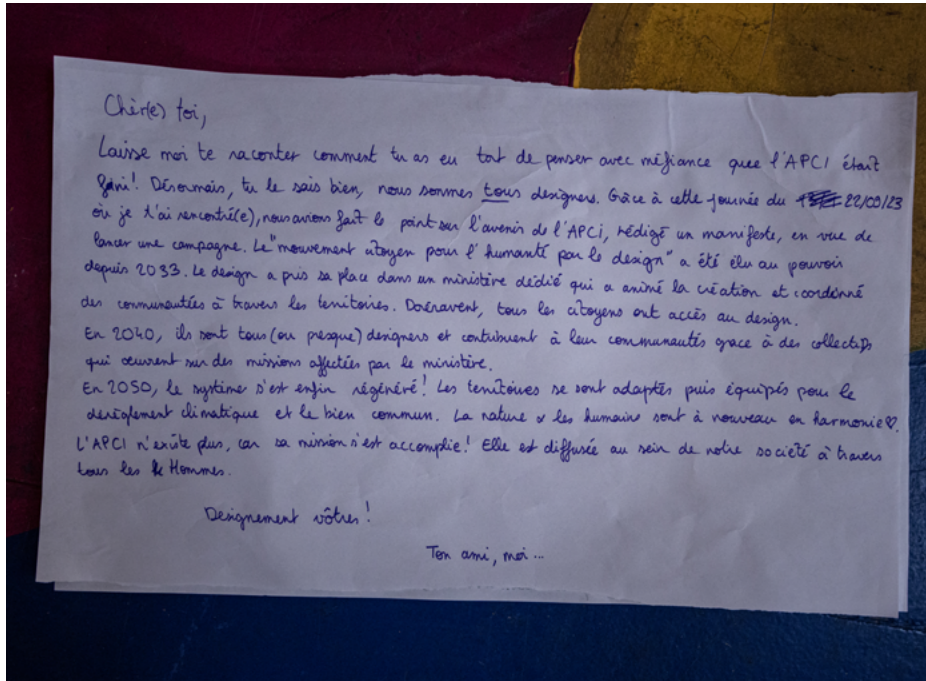 Chèr(e) toi,
Laisse moi te raconter comment tu as eu tort de penser avec méfiance quee l'APCI était
fini! Désormais, tu le sais bien, nous sommes tous designers. Grâce à cette journée du 22/09/23
où je t'ai rencontré(e), nous avions fait le point sur l'avenir de l'APCI, rédigé un manifeste, en vue de
lancer une campagne. Le "mouvement citoyen pour l'humanité par le design" a été élu au pouvoir
depuis 2033. Le design a pris sa place dans un ministère dédié qui a animé la création et coordonné
des communautées à travers les territoires. Dorénavent, tous les citoyens ont accès au design.
En 2040, ils sont tous (ou presque) designers et contribuent à leur communautés grace à des collectifs
qui œuvrent sur des missions affectées par le ministère.
En 2050, le système s'est enfin régénéré! Les territoires se sont adaptés puis équipés pour le
dérèglement climatique et le bien commun. La nature & les humains sont à nouveau en harmonie♡.
L'APCI n'existe plus, car sa mission s'est accomplie! Elle est diffusée au sein de notre société à travers
tous les Hommes.
Designement vôtres!
Ton ami, moi...